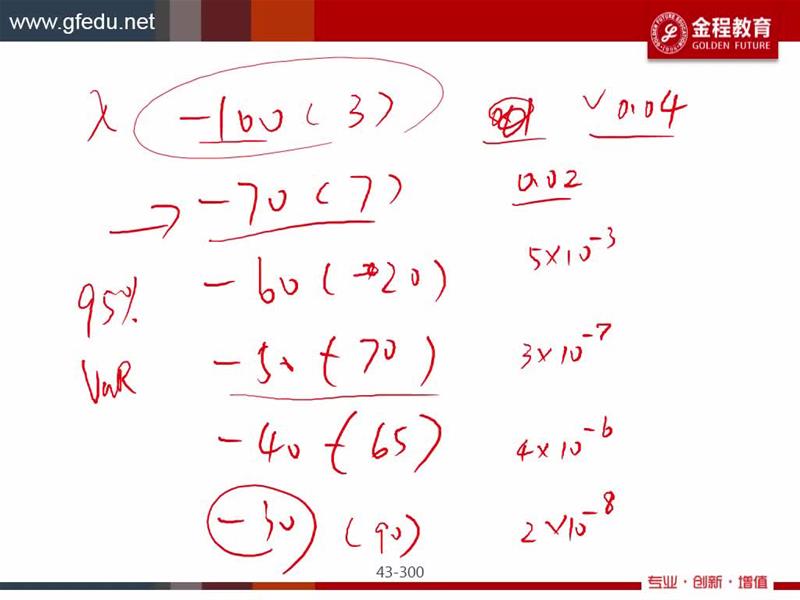 www.gfedu.net
金程教育
GOLDEN FUTURE
λ -100 (3) 0.04
-70 (7) 0.02
-60 (20) 5×10⁻³
95%
-50 (70) 3×10⁻⁷
VaR
-40 (65) 4×10⁻⁶
-30 (90) 2×10⁻⁸
43-300
专业·创新·增值